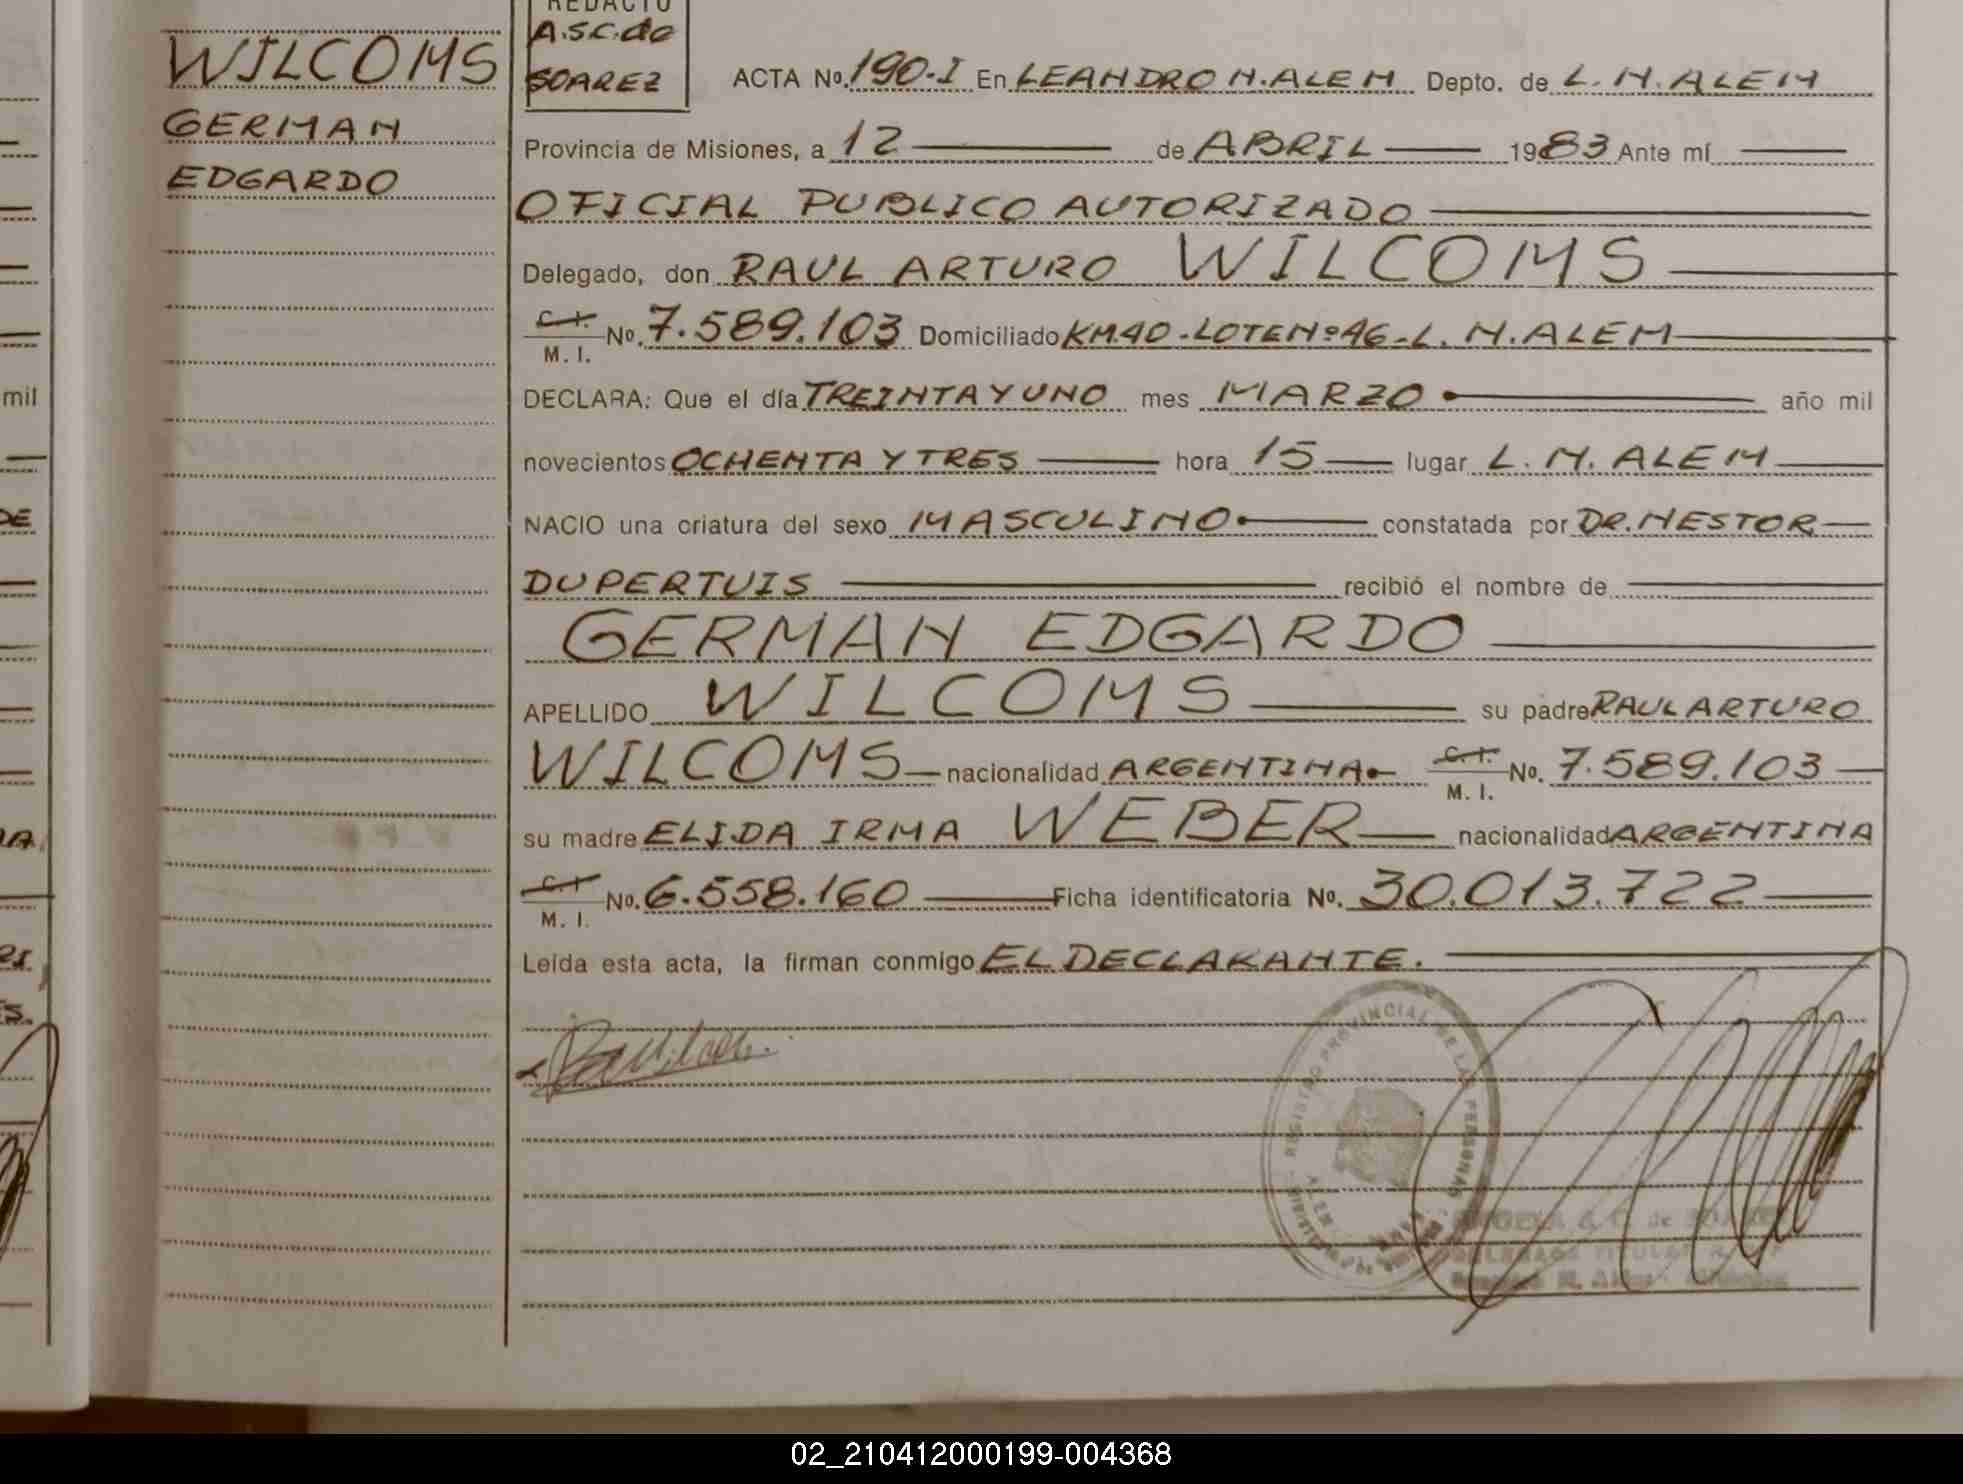 REDACTO
A.S.C. de
SOAREZ
WILCOMS
GERMAN
EDGARDO
ACTA No. 190-I En LEANDRO N. ALEM Depto. de L. N. ALEM
Provincia de Misiones, a 12 de ABRIL 1983 Ante mí
OFICIAL PUBLICO AUTORIZADO
Delegado, don RAUL ARTURO WILCOMS
C. I. M. I. No. 7.589.103 Domiciliado KM.40 - LOTE Nº 46 - L. N. ALEM
DECLARA: Que el día TREINTA Y UNO mes MARZO año mil
novecientos OCHENTA Y TRES hora 15 lugar L. N. ALEM
NACIO una criatura del sexo MASCULINO constatada por DR. NESTOR
DUPERTUIS recibió el nombre de
GERMAN EDGARDO
APELLIDO WILCOMS su padre RAUL ARTURO
WILCOMS nacionalidad ARGENTINA. C. I. M. I. No. 7.589.103
su madre ELIDA IRMA WEBER nacionalidad ARGENTINA
C. I. M. I. No. 6.558.160 Ficha identificatoria No. 30.013.722
Leída esta acta, la firman conmigo EL DECLARANTE.
REGISTRO PROVINCIAL DE LAS PERSONAS
ANGELA S. C. de SOAREZ
DELEGADA TITULAR
mil
DE
02_210412000199-004368